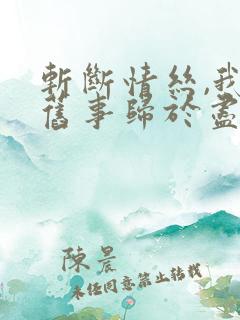 斬斷情絲,我
舊事歸於盡
陳晨
未任同意禁止转载